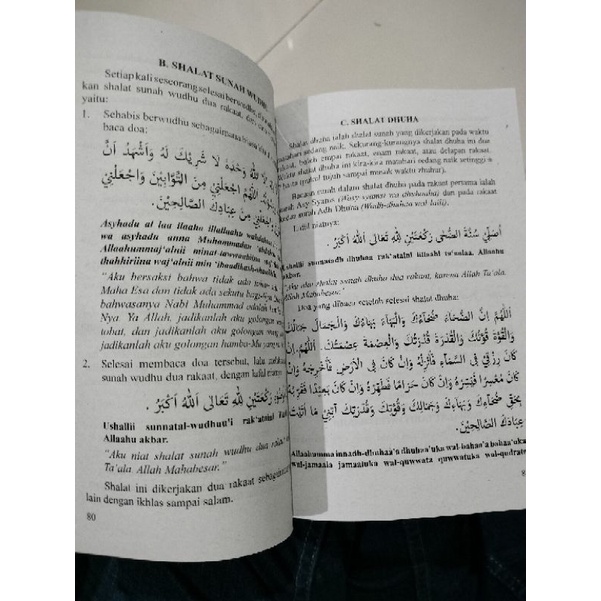 B. SHALAT SUNAH WUDHU
Setiap kali seseorang selesai berwudhu,
kan shalat sunah wudhu dua rakaat,
yaitu:
1. Sehabis berwudhu sebagaimana
baca doa:
لَا شَرِيْكَ لَهُ وَأَشْهَدُ أَنَّ
اَللّٰهُمَّ اجْعَلْنِيْ مِنَ التَّوَّابِيْنَ وَاجْعَلْنِيْ
مِنْ عِبَادِكَ الصَّالِحِيْنَ.
Asyhadu al laa ilaaha illallaahu wahdahuu
wa asyhadu anna Muhammadan
Allaahummaj'alnii minat-tawwaabiina
thahhiriina waj'alnii min 'ibaadikash
"Aku bersaksi bahwa tidak ada
Maha Esa dan tidak ada sekutu bagi-
bahwasanya Nabi Muhammad adalah
Nya. Ya Allah, jadikanlah aku golongan
tobat, dan jadikanlah aku golongan
jadikanlah aku golongan hamba-Mu yang
2. Selesai membaca doa tersebut, lalu
sunah wudhu dua rakaat, dengan lafal
رَكْعَتَيْنِ لِلّٰهِ تَعَالَى اَللّٰهُ اَكْبَرُ.
Ushallii sunnatal-wudhuu'i rak'atainl
Allaahu akbar.
"Aku niat shalat sunah wudhu dua
Ta'ala. Allah Mahabesar."
Shalat ini dikerjakan dua rakaat sebagaimana
lain dengan ikhlas sampai salam.
80
C. SHALAT DHUHA
Shalat dhuha ialah shalat sunah yang dikerjakan pada waktu
matahari sedang naik. Sekurang-kurangnya shalat dhuha ini dua
rakaat, boleh empat rakaat, enam rakaat, atau delapan rakaat.
shalat dhuha ini kira-kira matahari sedang naik setinggi ±
hasta (pukul tujuh sampai masuk waktu zhuhur).
Bacaan surah dalam shalat dhuha pada rakaat pertama ialah
surah Asy Syams (Wasy-syamsi wa dhuhaahaa) dan pada rakaat
surah Adh Dhuha (Wadh-dhuhaa wal laili).
niatnya:
اُصَلِّيْ سُنَّةَ الضُّحَى رَكْعَتَيْنِ لِلّٰهِ تَعَالَى اَللّٰهُ اَكْبَرُ.
Ushallii sunnatadh dhuhaa rak'ataini lillaahi ta'aalaa. Allaahu
niat shalat sunah dhuha dua rakaat, karena Allah Ta'ala.
Allah Mahabesar."
Doa yang dibaca setelah selesai shalat dhuha:
اَللّٰهُمَّ اِنَّ الضُّحَآءَ ضُحَآؤُكَ وَالْبَهَآءَ بَهَآؤُكَ وَالْجَمَالَ جَمَالُكَ
وَالْقُوَّةَ قُوَّتُكَ وَالْقُدْرَةَ قُدْرَتُكَ وَالْعِصْمَةَ عِصْمَتُكَ. اَللّٰهُمَّ اِنْ
كَانَ رِزْقِيْ فِى السَّمَآءِ فَأَنْزِلْهُ وَاِنْ كَانَ فِى الْاَرْضِ فَأَخْرِجْهُ وَاِنْ
كَانَ مُعَسَّرًا فَيَسِّرْهُ وَاِنْ كَانَ حَرَامًا فَطَهِّرْهُ وَاِنْ كَانَ بَعِيْدًا فَقَرِّبْهُ
بِحَقِّ ضُحَآئِكَ وَبَهَآئِكَ وَجَمَالِكَ وَقُوَّتِكَ وَقُدْرَتِكَ آتِنِيْ مَا اٰتَيْتَ
عِبَادَكَ الصَّالِحِيْنَ.
Allaahumma innadh-dhuhaa'a dhuhaa'uka wal-bahaa'a bahaa'uka
wal-jamaala jamaaluka wal-quwwata quwwatuka wal-qudrata
8